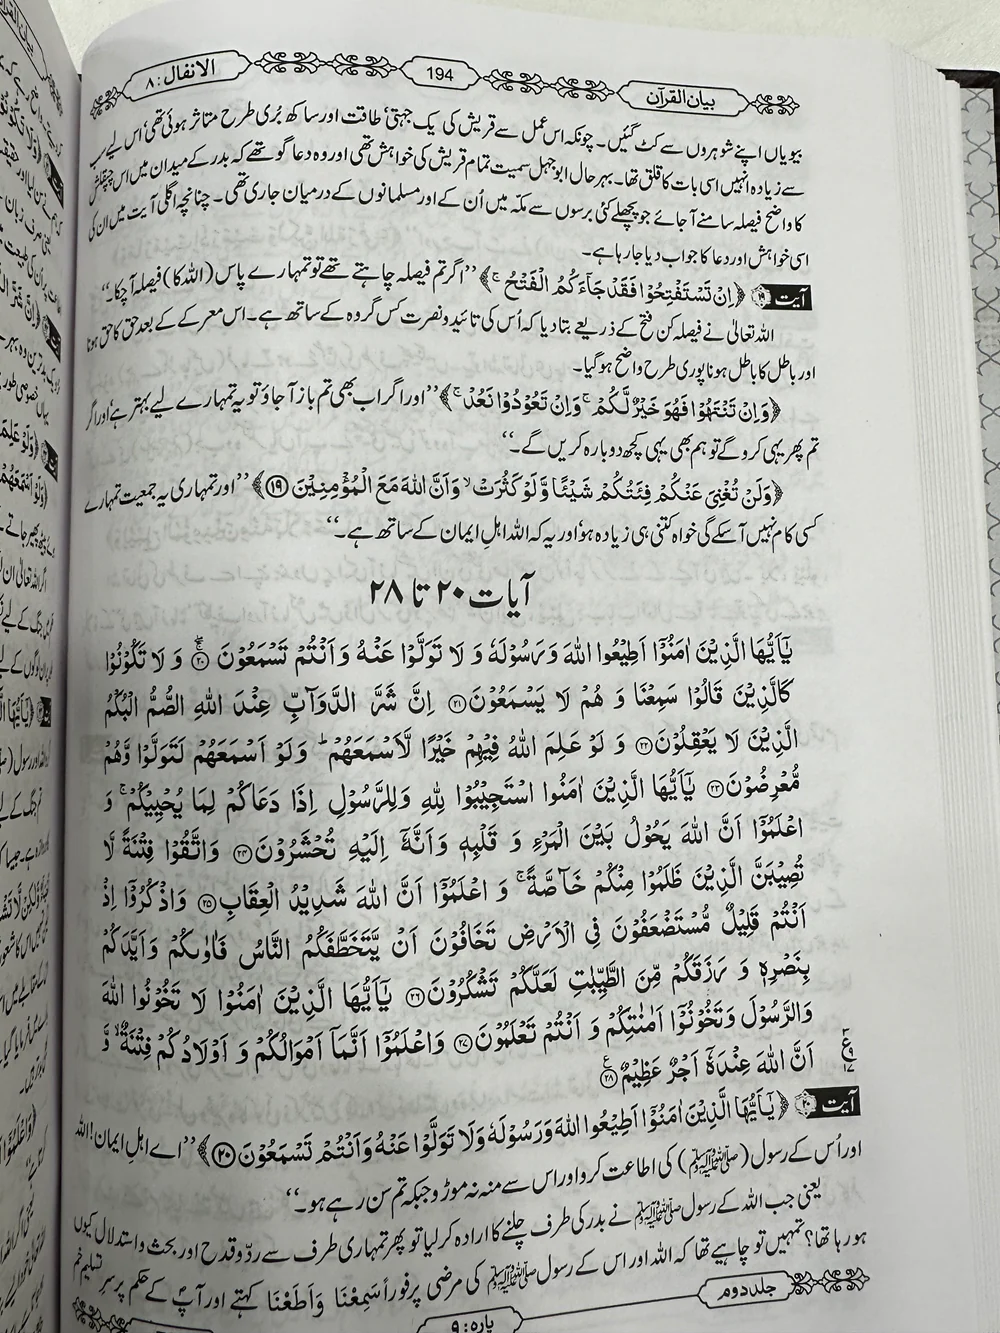 بیان القرآن
194
الانفال: ۸
بیویاں اپنے شوہروں سے کٹ گئیں۔ چونکہ اس عمل سے قریش کی یک جہتی' طاقت اور ساکھ بُری طرح متاثر ہوئی تھی' اس لیے سب
سے زیادہ انہیں اسی بات کا قلق تھا۔ بہرحال ابوجہل سمیت تمام قریش کی خواہش تھی اور وہ دعا گو تھے کہ بدر کے میدان میں اس چپقلش
کا واضح فیصلہ سامنے آ جائے جو پچھلے کئی برسوں سے مکہ میں اُن کے اور مسلمانوں کے درمیان جاری تھی۔ چنانچہ اگلی آیت میں ان کی
اسی خواہش اور دعا کا جواب دیا جا رہا ہے۔
آیت ۱۹ ﴿اِنْ تَسْتَفْتِحُوْا فَقَدْ جَآءَكُمُ الْفَتْحُ ۚ﴾ ''اگر تم فیصلہ چاہتے تھے تو تمہارے پاس (اللہ کا) فیصلہ آ چکا۔''
اللہ تعالیٰ نے فیصلہ کن فتح کے ذریعے بتا دیا کہ اُس کی تائید و نصرت کس گروہ کے ساتھ ہے۔ اس معرکے کے بعد حق کا حق ہونا
اور باطل کا باطل ہونا پوری طرح واضح ہو گیا۔
﴿وَاِنْ تَنْتَهُوْا فَهُوَ خَيْرٌ لَّكُمْ ۚ وَاِنْ تَعُوْدُوْا نَعُدْ ۚ﴾ ''اور اگر اب بھی تم باز آ جاؤ تو یہ تمہارے لیے بہتر ہے' اور اگر
تم پھر یہی کرو گے تو ہم بھی یہی کچھ دوبارہ کریں گے۔''
﴿وَلَنْ تُغْنِيَ عَنْكُمْ فِئَتُكُمْ شَيْئًا وَّلَوْ كَثُرَتْ ۙ وَاَنَّ اللهَ مَعَ الْمُؤْمِنِيْنَ ۝۱۹﴾ ''اور تمہاری یہ جمعیت تمہارے
کسی کام نہیں آ سکے گی خواہ کتنی ہی زیادہ ہو' اور یہ کہ اللہ اہلِ ایمان کے ساتھ ہے۔''
آیات ۲۰ تا ۲۸
يٰۤاَيُّهَا الَّذِيْنَ اٰمَنُوْۤا اَطِيْعُوا اللهَ وَرَسُوْلَهٗ وَ لَا تَوَلَّوْا عَنْهُ وَ اَنْتُمْ تَسْمَعُوْنَ ۝۲۰ وَ لَا تَكُوْنُوْا
كَالَّذِيْنَ قَالُوْا سَمِعْنَا وَ هُمْ لَا يَسْمَعُوْنَ ۝۲۱ اِنَّ شَرَّ الدَّوَآبِّ عِنْدَ اللهِ الصُّمُّ الْبُكْمُ
الَّذِيْنَ لَا يَعْقِلُوْنَ ۝۲۲ وَ لَوْ عَلِمَ اللهُ فِيْهِمْ خَيْرًا لَّاَسْمَعَهُمْ ؕ وَ لَوْ اَسْمَعَهُمْ لَتَوَلَّوْا وَّهُمْ
مُّعْرِضُوْنَ ۝۲۳ يٰۤاَيُّهَا الَّذِيْنَ اٰمَنُوا اسْتَجِيْبُوْا لِلّٰهِ وَلِلرَّسُوْلِ اِذَا دَعَاكُمْ لِمَا يُحْيِيْكُمْ ۚ وَ
اعْلَمُوْۤا اَنَّ اللهَ يَحُوْلُ بَيْنَ الْمَرْءِ وَ قَلْبِهٖ وَ اَنَّهٗۤ اِلَيْهِ تُحْشَرُوْنَ ۝۲۴ وَاتَّقُوْا فِتْنَةً لَّا
تُصِيْبَنَّ الَّذِيْنَ ظَلَمُوْا مِنْكُمْ خَآصَّةً ۚ وَ اعْلَمُوْۤا اَنَّ اللهَ شَدِيْدُ الْعِقَابِ ۝۲۵ وَاذْكُرُوْۤا اِذْ
اَنْتُمْ قَلِيْلٌ مُّسْتَضْعَفُوْنَ فِي الْاَرْضِ تَخَافُوْنَ اَنْ يَّتَخَطَّفَكُمُ النَّاسُ فَاٰوٰىكُمْ وَ اَيَّدَكُمْ
بِنَصْرِهٖ وَ رَزَقَكُمْ مِّنَ الطَّيِّبٰتِ لَعَلَّكُمْ تَشْكُرُوْنَ ۝۲۶ يٰۤاَيُّهَا الَّذِيْنَ اٰمَنُوْا لَا تَخُوْنُوا اللهَ
وَالرَّسُوْلَ وَتَخُوْنُوْۤا اَمٰنٰتِكُمْ وَ اَنْتُمْ تَعْلَمُوْنَ ۝۲۷ وَاعْلَمُوْۤا اَنَّمَاۤ اَمْوَالُكُمْ وَ اَوْلَادُكُمْ فِتْنَةٌ ۙ وَّ
اَنَّ اللهَ عِنْدَهٗۤ اَجْرٌ عَظِيْمٌ ۝۲۸
آیت ۲۰ ﴿يٰۤاَيُّهَا الَّذِيْنَ اٰمَنُوْۤا اَطِيْعُوا اللهَ وَرَسُوْلَهٗ وَلَا تَوَلَّوْا عَنْهُ وَاَنْتُمْ تَسْمَعُوْنَ ۝۲۰﴾ ''اے اہلِ ایمان! اللہ
اور اُس کے رسول (ﷺ) کی اطاعت کرو اور اس سے منہ نہ موڑو جبکہ تم سن رہے ہو۔''
یعنی جب اللہ کے رسول ﷺ نے بدر کی طرف چلنے کا ارادہ کر لیا تو پھر تمہاری طرف سے ردّ و قدح اور بحث و استدلال کیوں
ہو رہا تھا؟ تمہیں تو چاہیے تھا کہ اللہ اور اس کے رسول ﷺ کی مرضی پر فوراً سَمِعْنَا وَاَطَعْنَا کہتے اور آپؐ کے حکم پر سرِ تسلیم خم
جلد دوم
پارہ: ۹